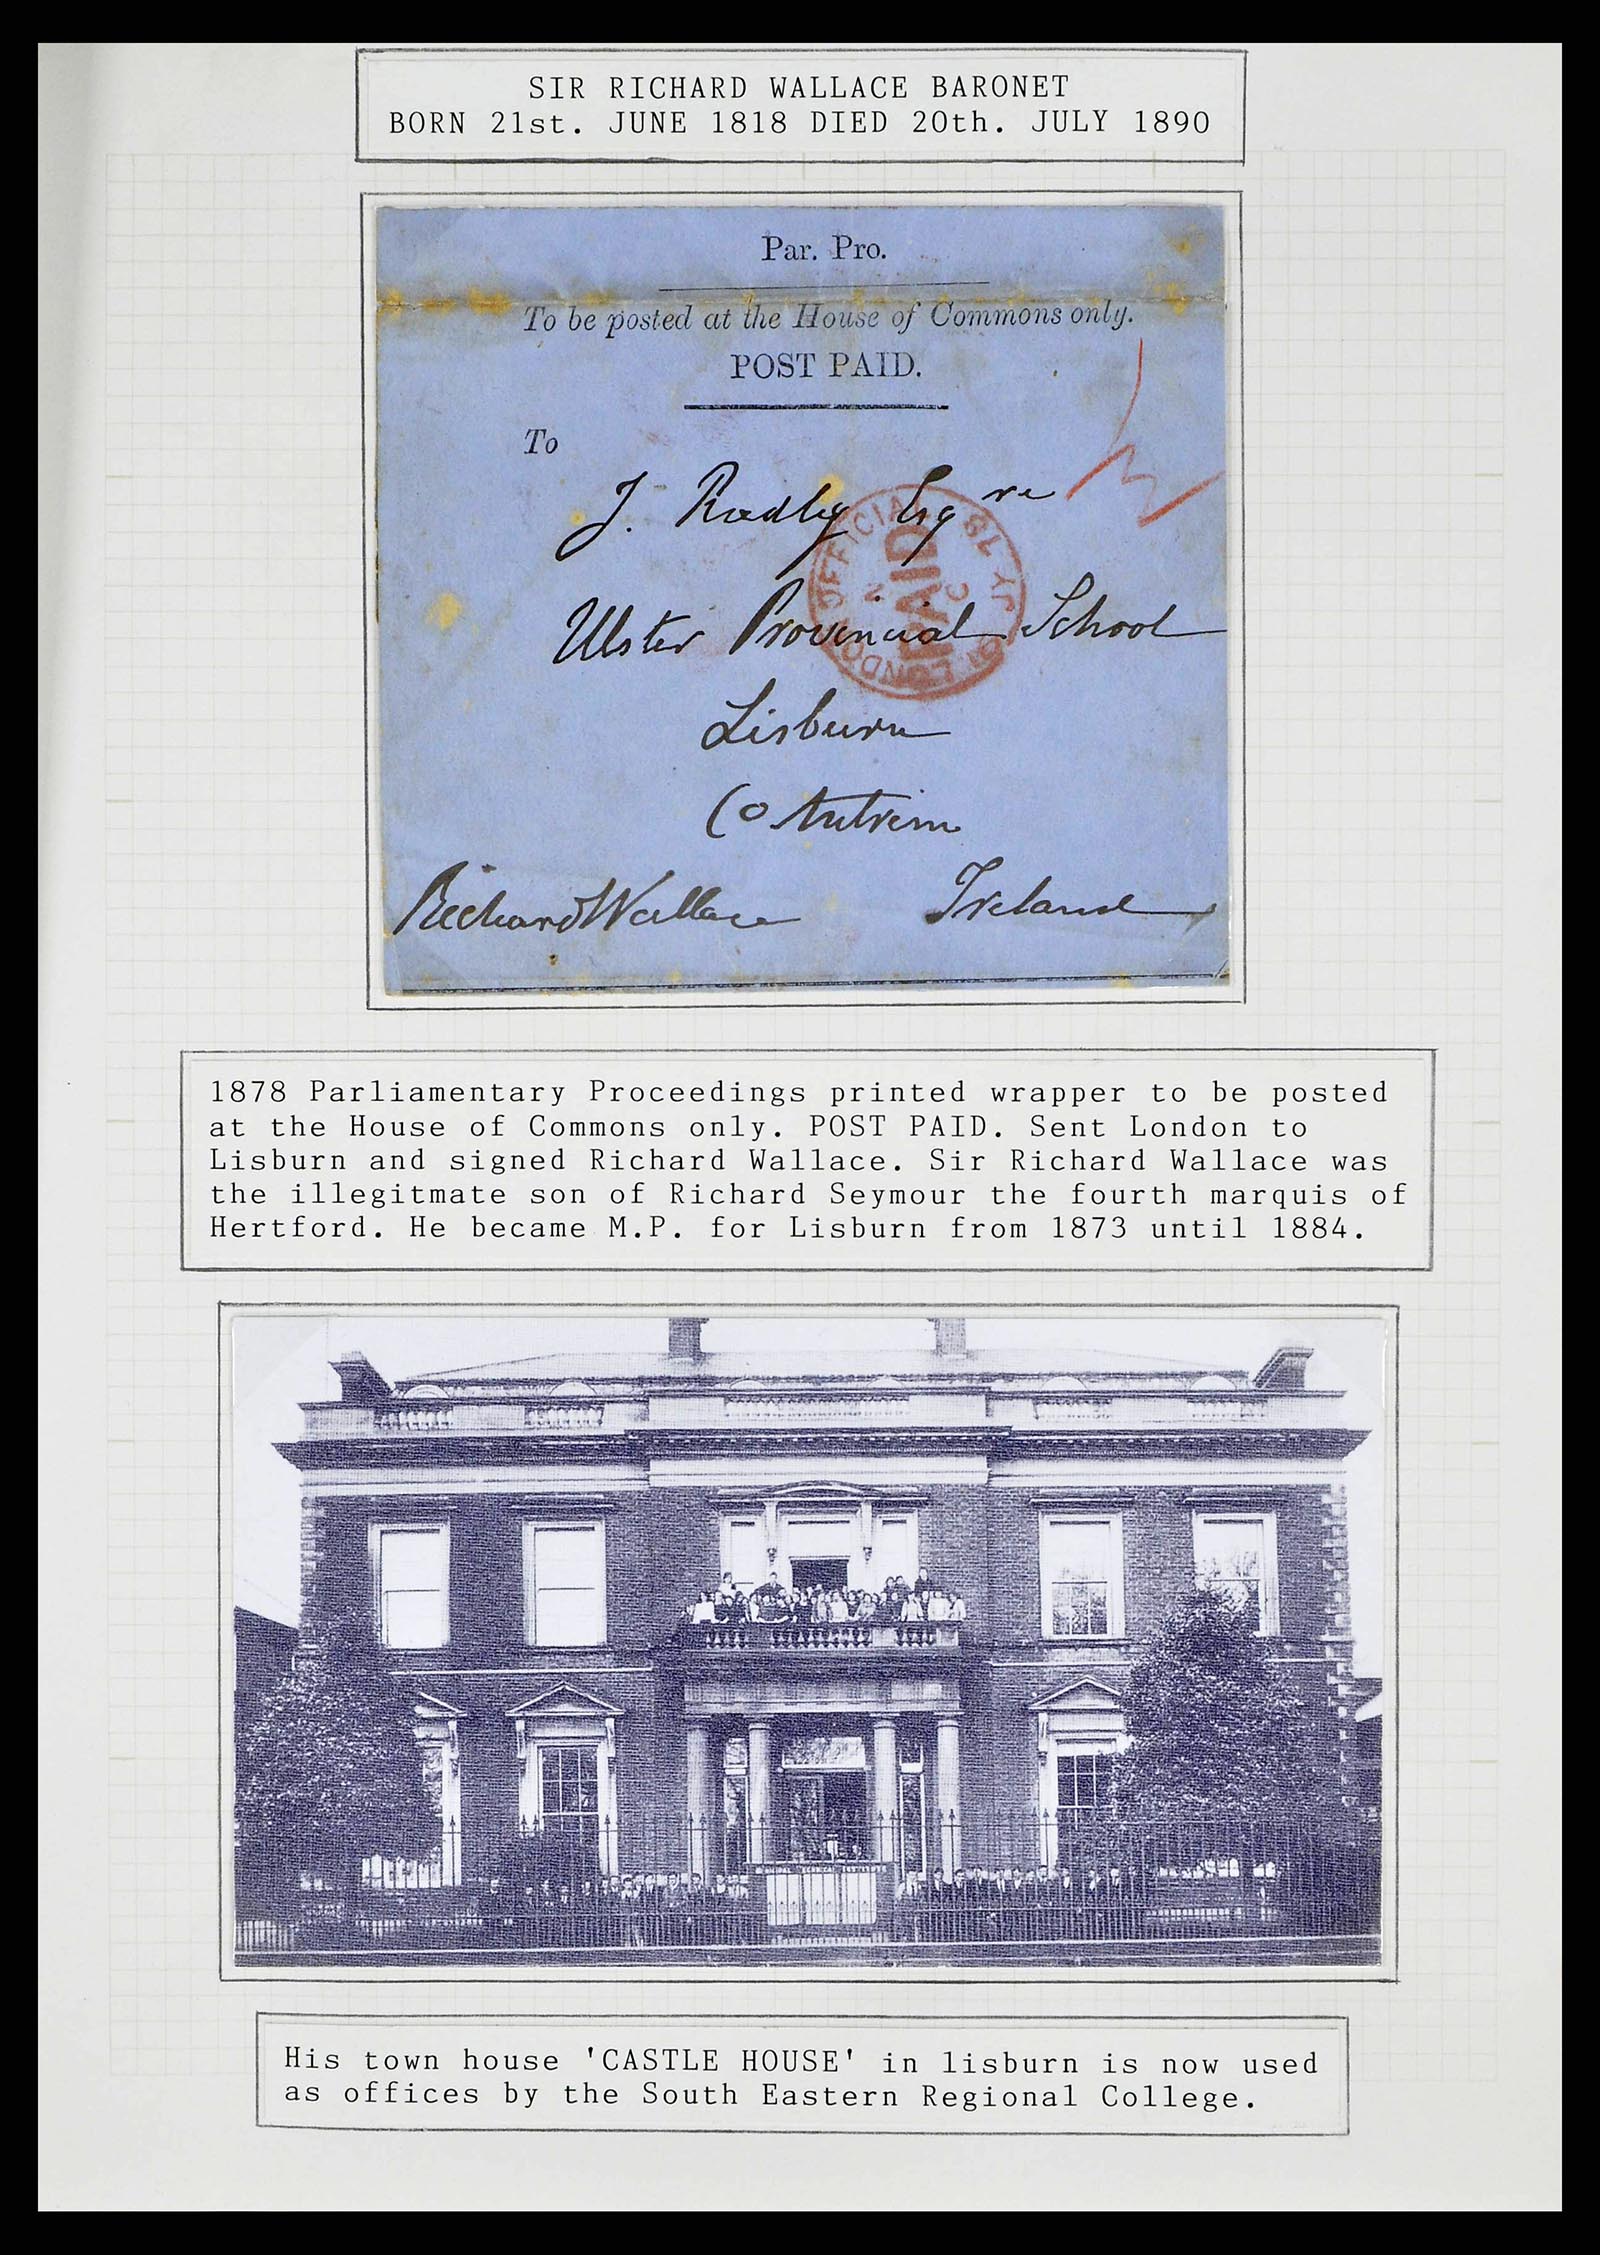 SIR RICHARD WALLACE BARONET
BORN 21st. JUNE 1818 DIED 20th. JULY 1890
Par. Pro.
To be posted at the House of Commons only.
POST PAID.
To
J. Radley Esqre
OFFICIAL
PAID
LONDON
Ulster Provincial School
Lisburn
Co Antrim
Richard Wallace Ireland
1878 Parliamentary Proceedings printed wrapper to be posted
at the House of Commons only. POST PAID. Sent London to
Lisburn and signed Richard Wallace. Sir Richard Wallace was
the illegitmate son of Richard Seymour the fourth marquis of
Hertford. He became M.P. for Lisburn from 1873 until 1884.
TECHNICAL INSTITUTE
His town house 'CASTLE HOUSE' in lisburn is now used
as offices by the South Eastern Regional College.